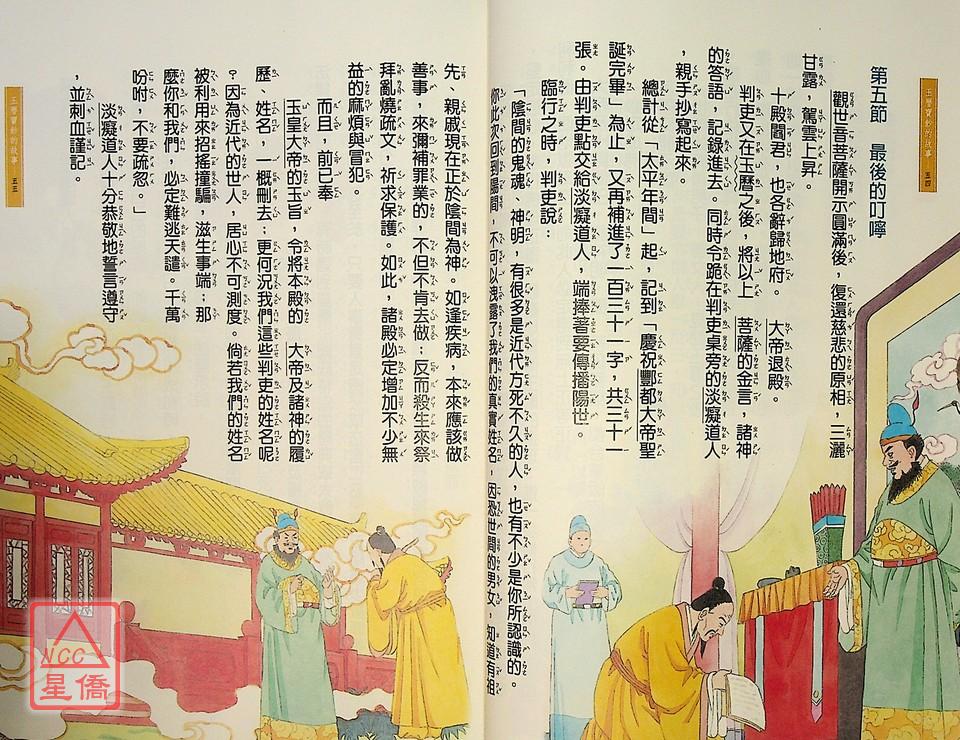 玉曆寶鈔的故事 五四
第五節 最後的叮嚀
觀世音菩薩開示圓滿後，復還慈悲的原相，三灑
甘露，駕雲上昇。
十殿閻君，也各辭歸地府。 大帝退殿。
判吏又在玉曆之後，將以上 菩薩的金言，諸神
的答語，記錄進去。同時令跪在判吏桌旁的淡癡道人
，親手抄寫起來。
總計從「太平年間」起，記到「慶祝酆都大帝聖
誕完畢」為止，又再補進了一百三十一字，共三十一
張。由判吏點交給淡癡道人，端捧著要傳播陽世。
臨行之時，判吏說：
「陰間的鬼魂、神明，有很多是近代方死不久的人，也有不少是你所認識的。
你此次回到陽間，不可以洩露了我們的真實姓名，因恐世間的男女，知道有祖
先、親戚現在正於陰間為神。如逢疾病，本來應該做
善事，來彌補罪業的，不但不肯去做；反而殺生來祭
拜亂燒疏文，祈求保護。如此，諸殿必定增加不少無
益的麻煩與冒犯。
而且，前已奉
玉皇大帝的玉旨，令將本殿的 大帝及諸神的履
歷、姓名，一概刪去；更何況我們這些判吏的姓名呢
？因為近代的世人，居心不可測度。倘若我們的姓名
被利用來招搖撞騙，滋生事端；那
麼你和我們，必定難逃天譴。千萬
吩咐，不要疏忽。」
淡癡道人十分恭敬地誓言遵守
，並刺血謹記。
玉曆寶鈔的故事 五五
NCC
星僑